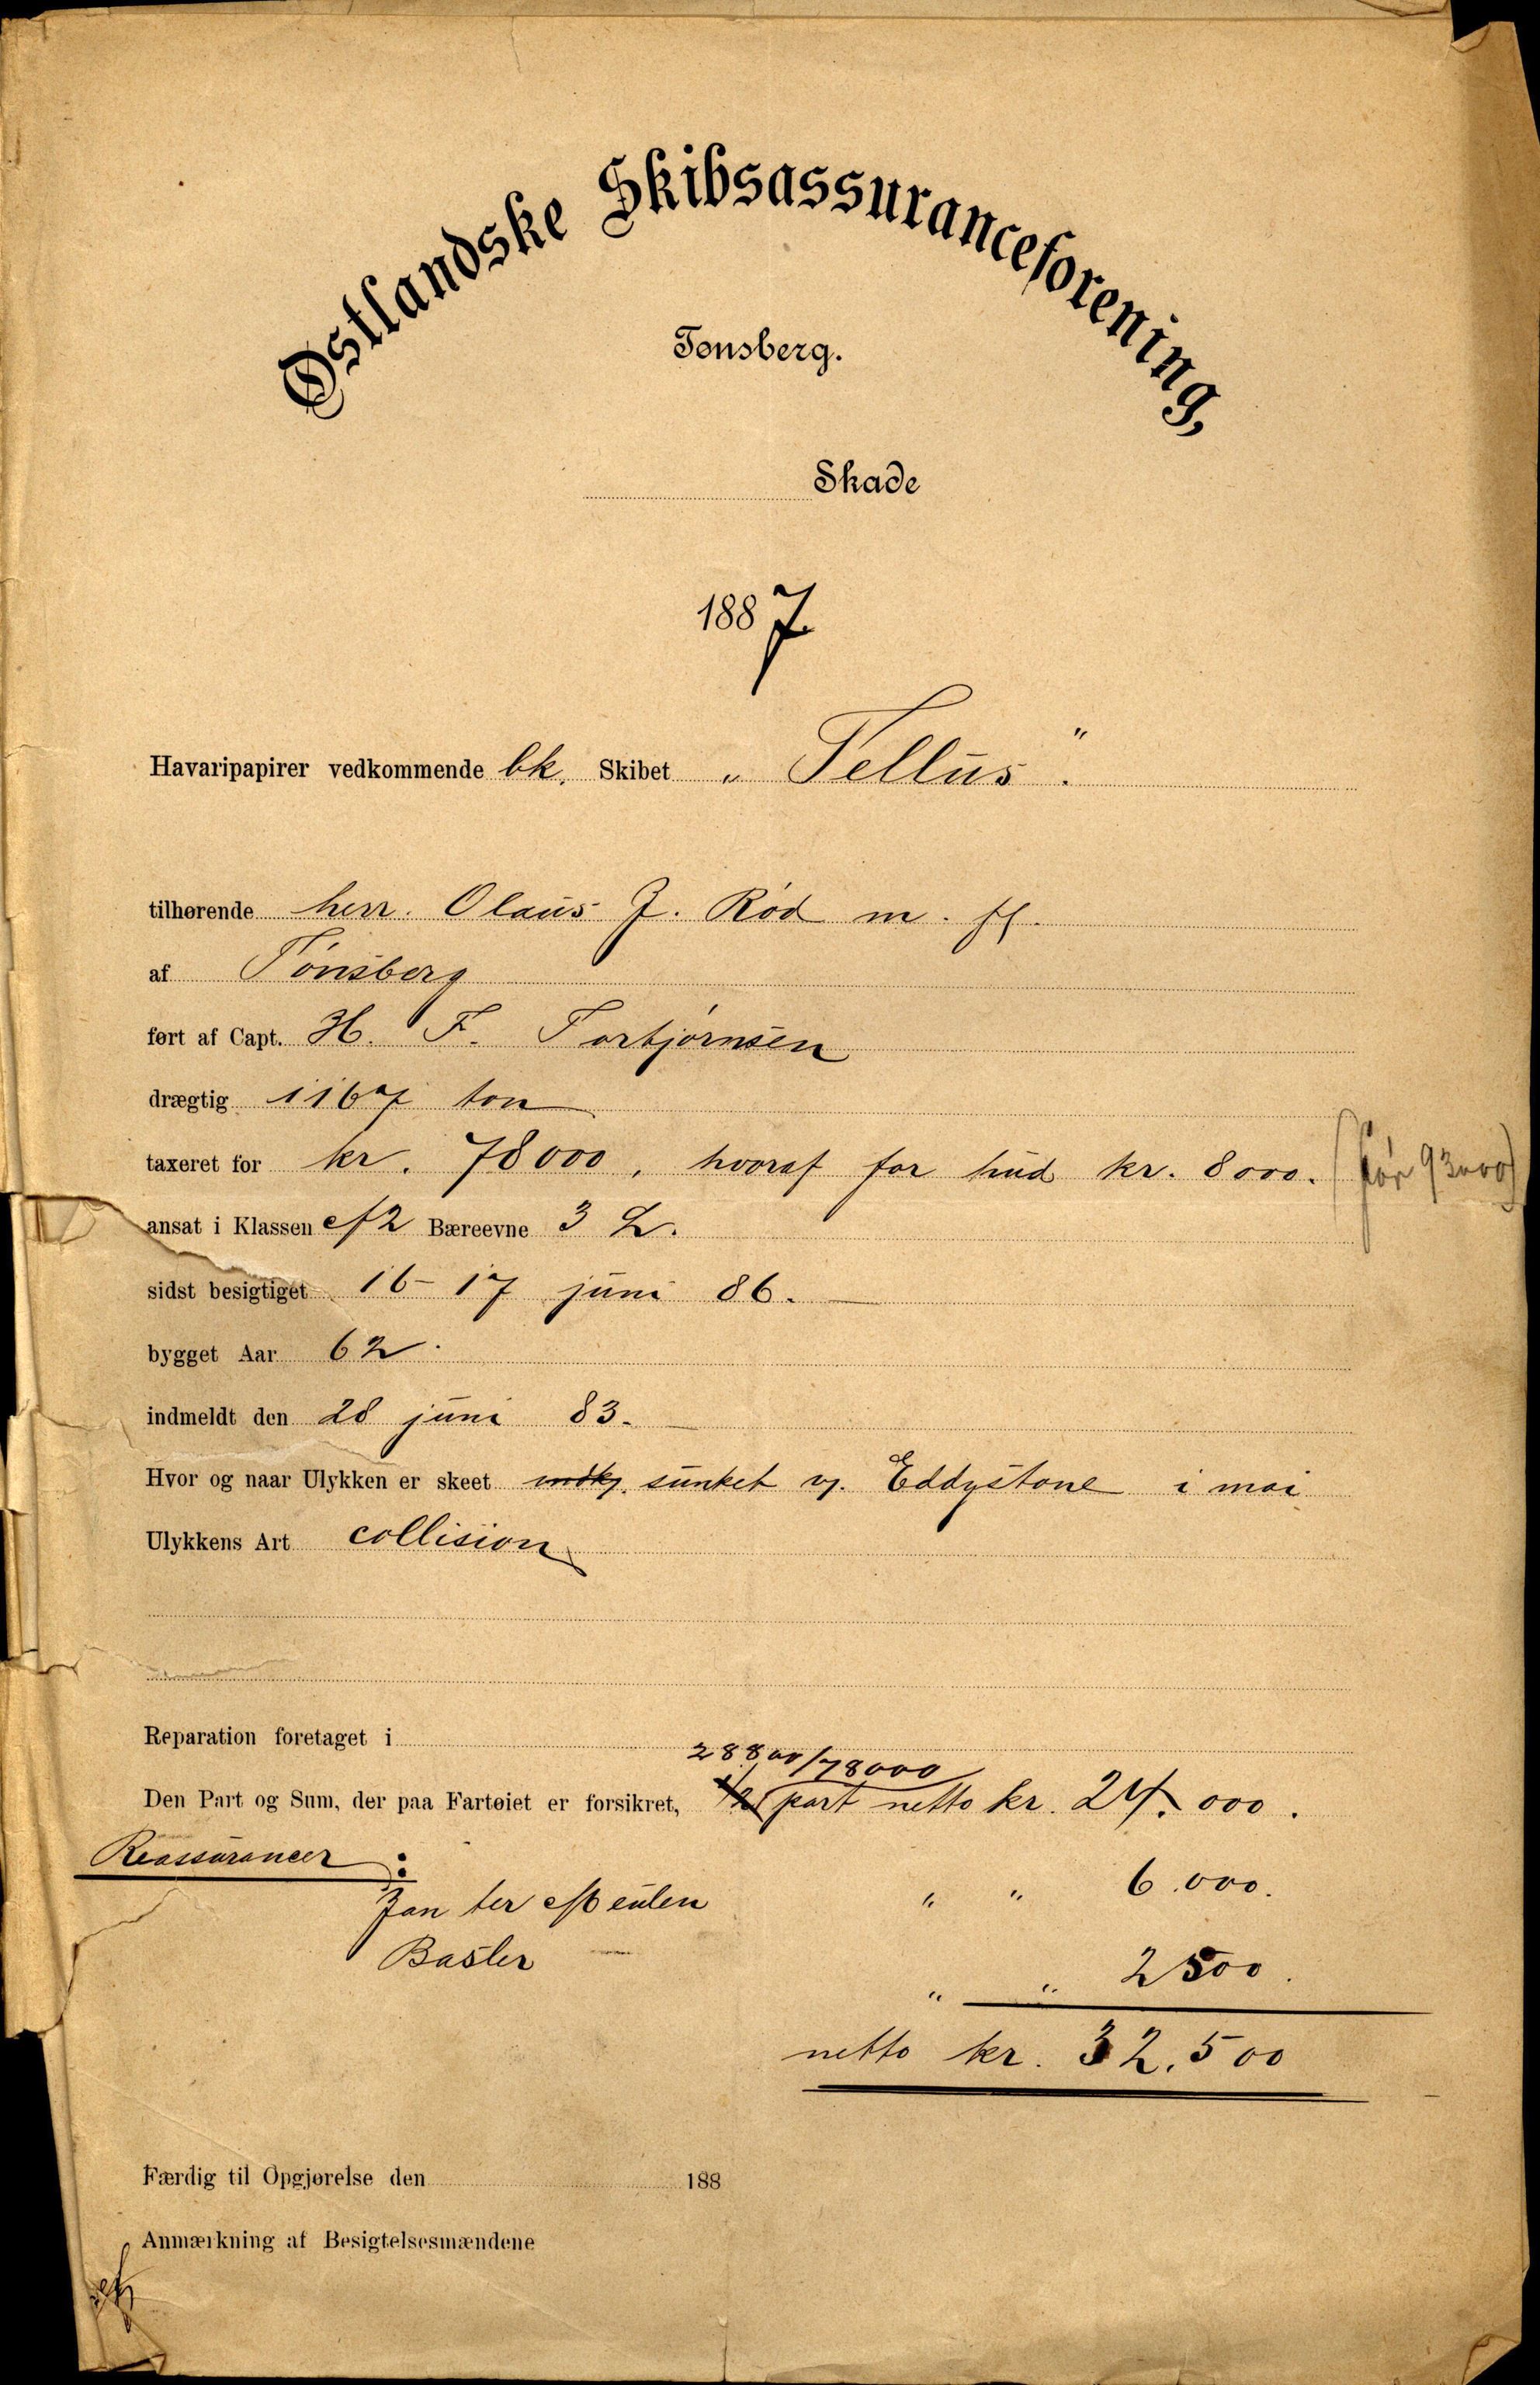 Østlandske Skibsassuranceforening,
Tønsberg.
Skade
1887.
Havaripapirer vedkommende bk. Skibet „Tellus".
tilhørende herr. Olaus J. Rød m. fl.
af Tønsberg
ført af Capt. H. F. Torbjørnsen
drægtig 1167 ton
taxeret for kr. 78000, hvoraf for hud kr. 8000. (før 93000)
ansat i Klassen A2 Bæreevne 3 L.
sidst besigtiget 16-17 juni 86.
bygget Aar 62.
indmeldt den 28 juni 83.
Hvor og naar Ulykken er skeet sunket v. Eddystone i mai
Ulykkens Art collision
Reparation foretaget i
28800/78000
Den Part og Sum, der paa Fartøiet er forsikret, 1/2 part netto kr. 24.000.
Reassurancer:
Jan ter Meulen „ „ 6.000.
Basler „ „ 2500.
netto kr. 32.500
Færdig til Opgjørelse den 188
Anmærkning af Besigtelsesmændene